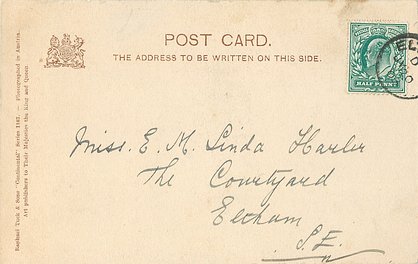 POST CARD.
THE ADDRESS TO BE WRITTEN ON THIS SIDE.
HALF PENNY
EL
Raphael Tuck & Sons "Continental" Series 1547. — Photographed in Austria.
Art publishers to Their Majesties the King and Queen.
Miss. E. M. Linda Harler
The Courtyard
Eltham
S.E.